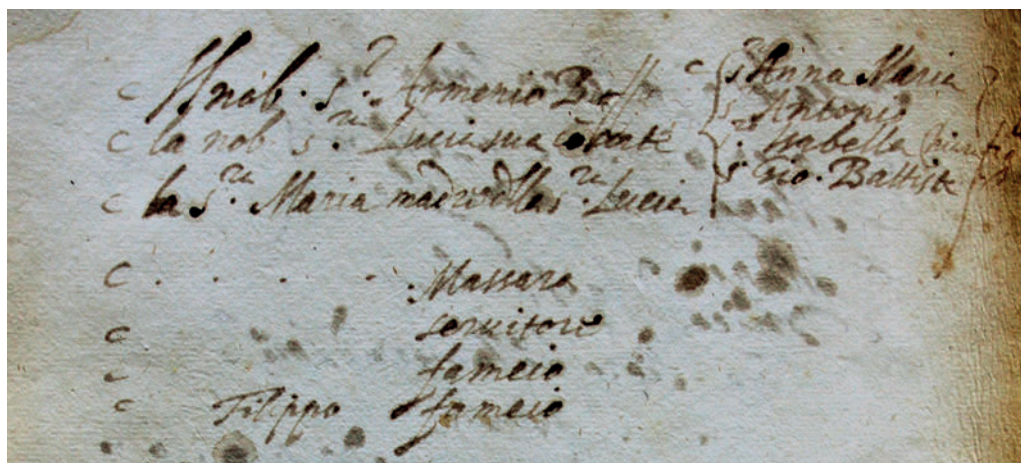 c Il nob. s.r Armenio
c la nob. s.ra Lucia sua
c la s.ra Maria madre della s.ra Lucia
c s. Anna Maria
s. Antonio
s. Isabella
s. Gio. Battista
c . . . . Massara
c servitore
c fameio
c Filippo fameio